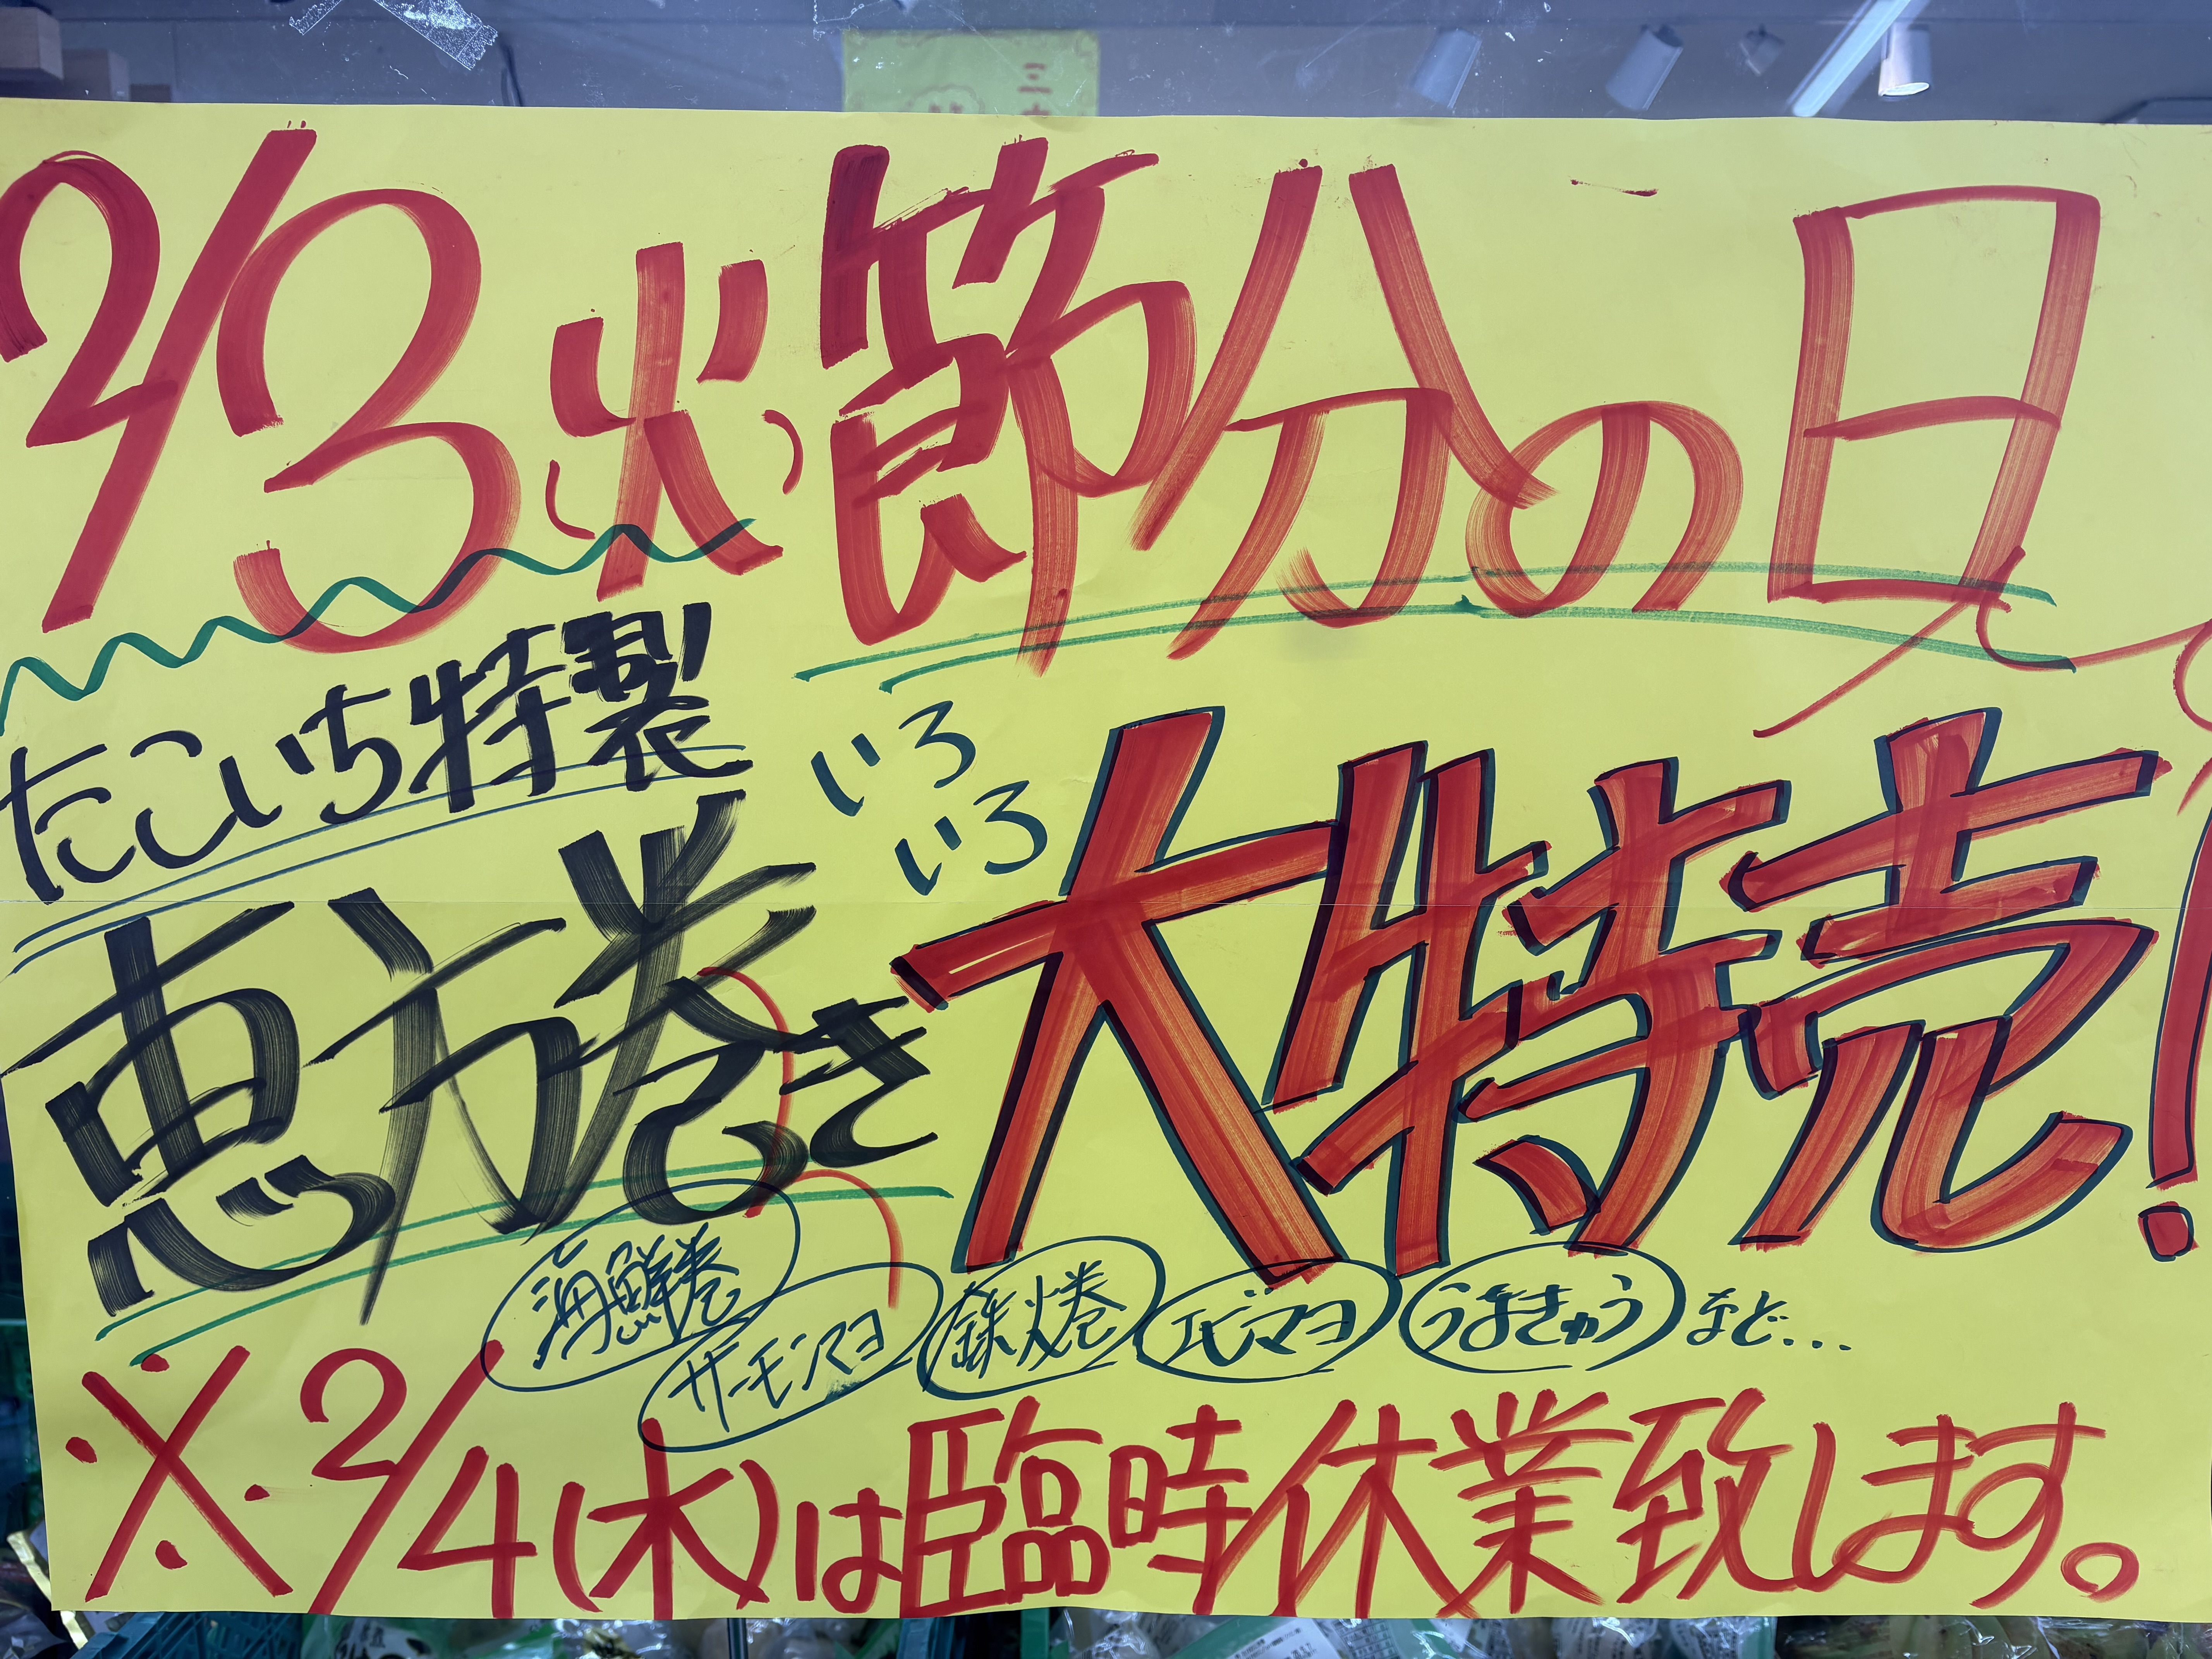 2/3(火)節分の日
たこいち特製
恵方巻き
いろ
いろ
大特売!
海鮮巻
サーモンマヨ
鉄火巻
エビマヨ
うなきゅう
など...
※2/4(水)は臨時休業致します。